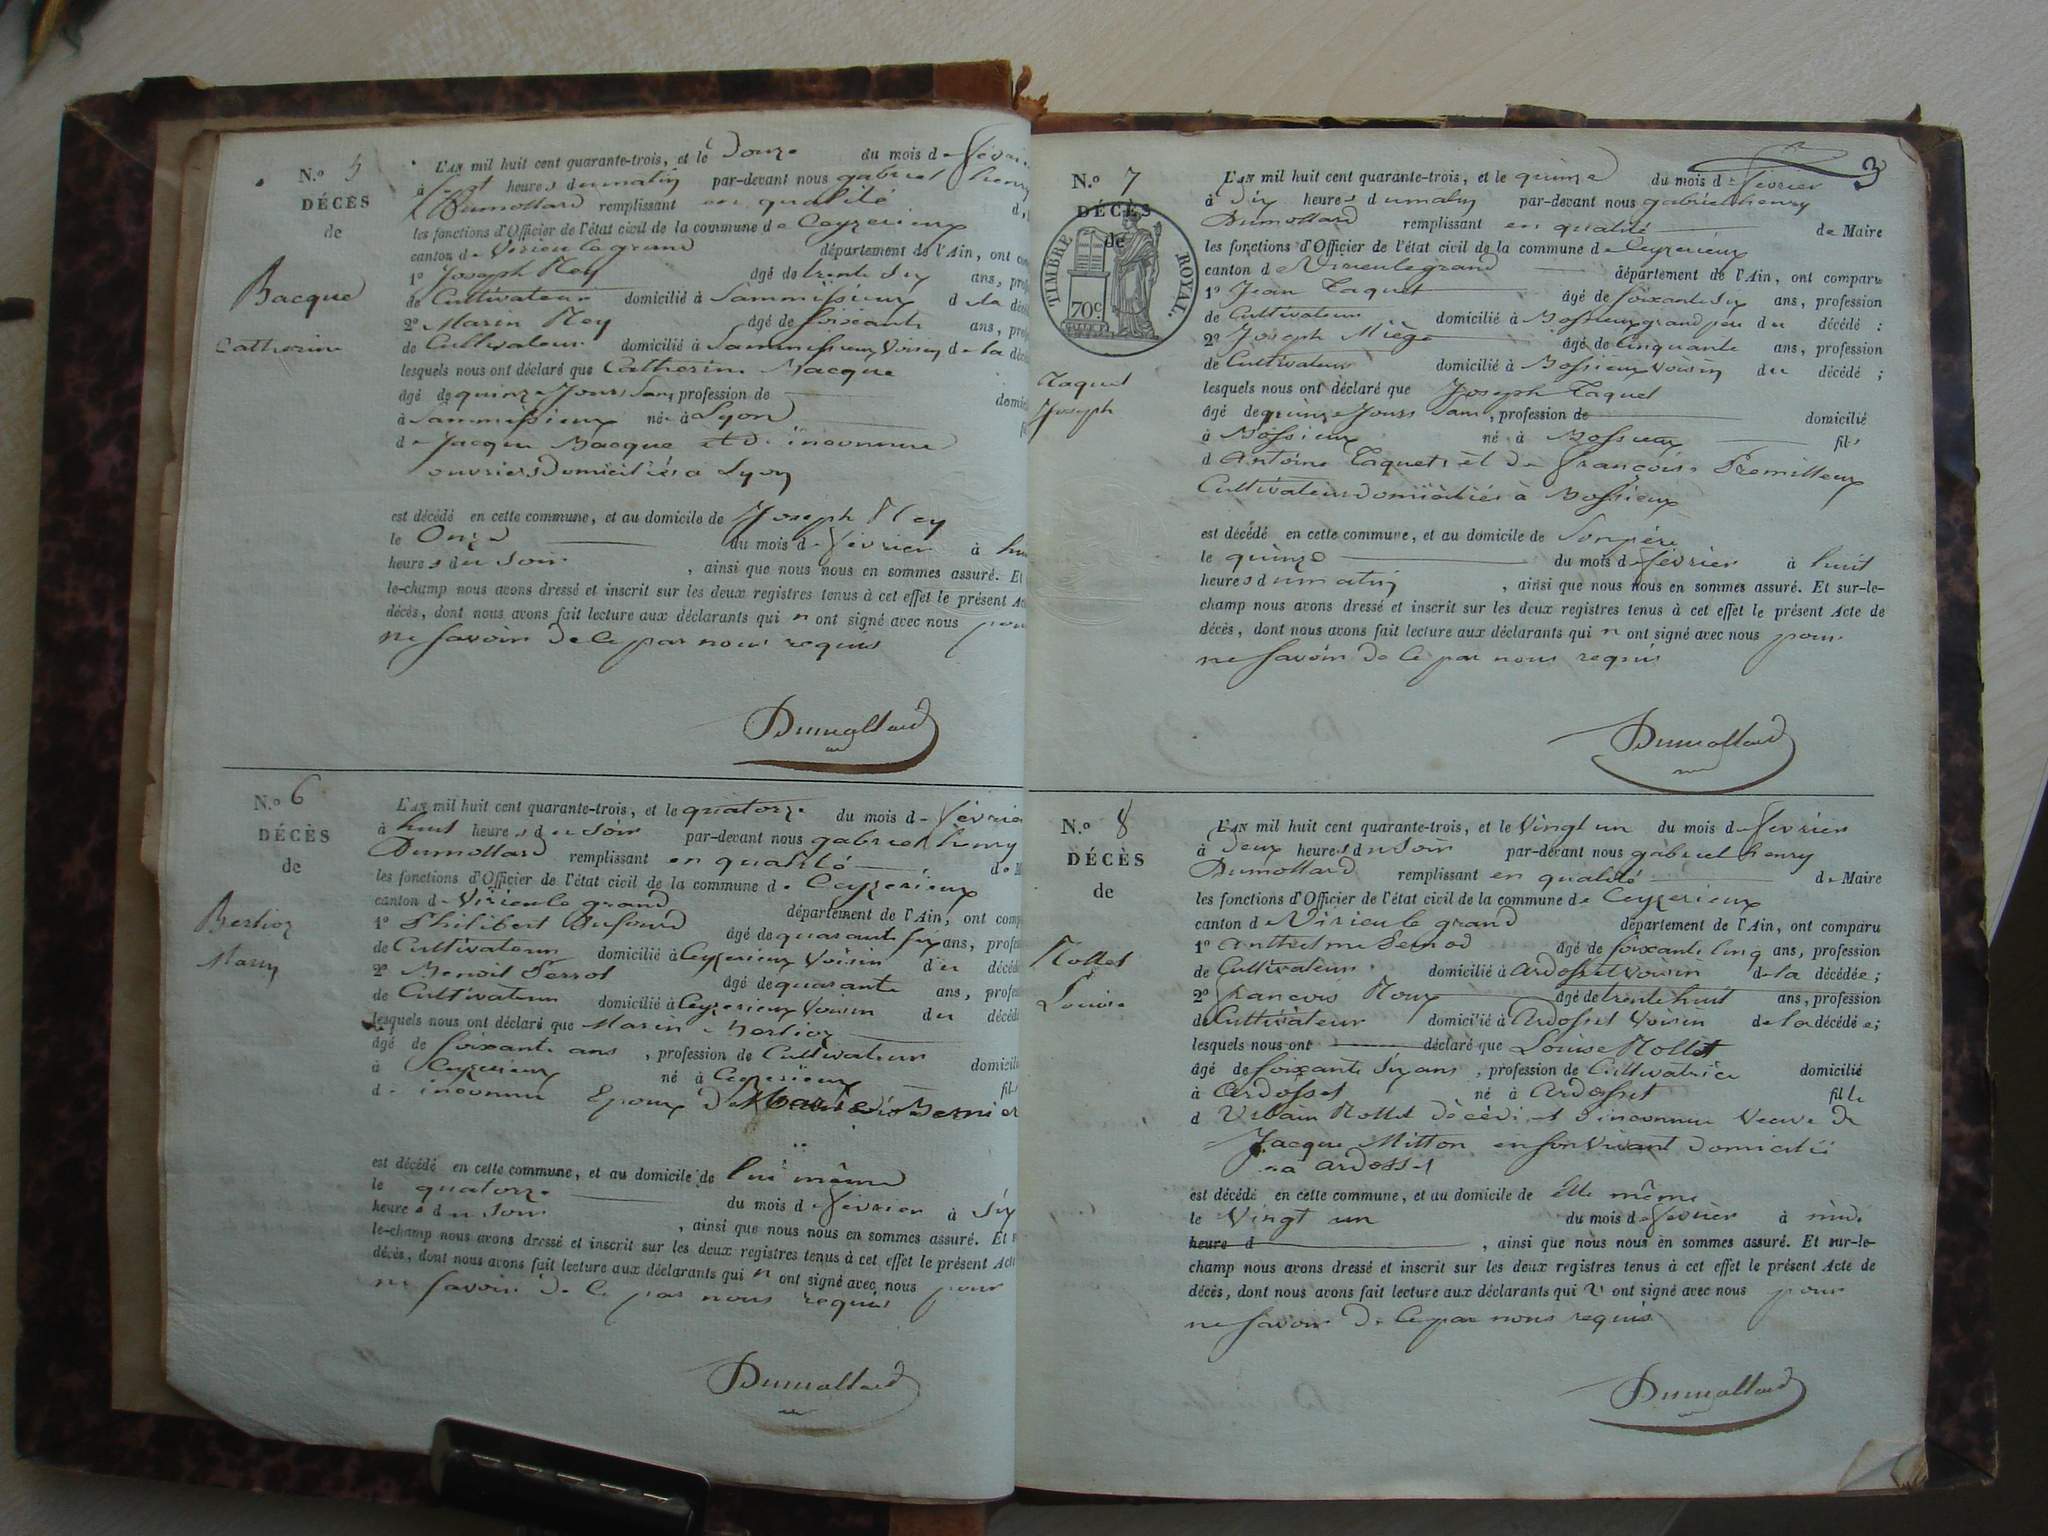 N.o 5
DÉCÈS
de
Bacque
Catherine
L'AN mil huit cent quarante-trois, et le Douze du mois de février
à sept heures du matin par-devant nous gabriel henry
Dumollard remplissant en qualité d
les fonctions d'Officier de l'état civil de la commune de Ceyzerieux
canton de Virieu le grand département de l'Ain, ont com
1o Joseph Rey âgé de trente six ans, prof
de Cultivateur domicilié à Sammissieux de la décé
2o Marin Rey âgé de soixante ans, prof
de Cultivateur domicilié à Sammissieux Voisin de la déc
lesquels nous ont déclaré que Catherine Bacque
âgé de quinze Jours Sans profession de domici
à Sammissieux né à Lyon fil
d Jacque Bacque et de inconnue
ouvriers domiciliés a Lyon
est décédé en cette commune, et au domicile de Joseph Rey
le Onze du mois de février à hui
heures du soir , ainsi que nous nous en sommes assuré. Et
le-champ nous avons dressé et inscrit sur les deux registres tenus à cet effet le présent Ac
décès, dont nous avons fait lecture aux déclarants qui n ont signé avec nous pour
ne savoir de ce par nous requis
Dumollard
N.o 6
DÉCÈS
de
Berlioz
Marin
L'AN mil huit cent quarante-trois, et le quatorze du mois de février
à huit heures du soir par-devant nous gabriel henry
Dumollard remplissant en qualité de M
les fonctions d'Officier de l'état civil de la commune de Ceyzerieux
canton de Virieu le grand département de l'Ain, ont comp
1o Philibert Dufourd âgé de quarante six ans, profes
de Cultivateur domicilié à Ceyzerieux Voisin du décédé
2o Benoit Perrot âgé de quarante ans, profes
de Cultivateur domicilié à Ceyzerieux Voisin du décédé
lesquels nous ont déclaré que Marin Berlioz
âgé de soixante ans , profession de Cultivateur domicilié
à Ceyzerieux né à Ceyzerieux fils
de inconnu Epoux De Bernier
est décédé en cette commune, et au domicile de lui même
le quatorze du mois de février à six
heures du soir , ainsi que nous nous en sommes assuré. Et s
le-champ nous avons dressé et inscrit sur les deux registres tenus à cet effet le présent Acte
décès, dont nous avons fait lecture aux déclarants qui n ont signé avec nous pour
ne savoir de ce par nous requis
Dumollard
3
N.o 7
DÉCÈS
de
TIMBRE ROYAL.
70c
Taquet
Joseph
L'AN mil huit cent quarante-trois, et le quinze du mois de février
à dix heures du matin par-devant nous gabriel henry
Dumollard remplissant en qualité de Maire
les fonctions d'Officier de l'état civil de la commune de Ceyzerieux
canton de Virieu le grand département de l'Ain, ont comparu
1o Jean Taquet âgé de soixante six ans, profession
de Cultivateur domicilié à Bossieux grand père du décédé :
2o Joseph Miège âgé de Cinquante ans, profession
de Cultivateur domicilié à Bossieux Voisin du décédé ;
lesquels nous ont déclaré que Joseph Taquet
âgé de quinze Jours Sans , profession de domicilié
à Bossieux né à Bossieux fils
d Antoine Taquet et de françoise Premilleux
Cultivateurs domiciliés à Bossieux
est décédé en cette commune, et au domicile de Son père
le quinze du mois de février à huit
heures du matin , ainsi que nous nous en sommes assuré. Et sur-le-
champ nous avons dressé et inscrit sur les deux registres tenus à cet effet le présent Acte de
décès, dont nous avons fait lecture aux déclarants qui n ont signé avec nous pour
ne savoir de ce par nous requis
Dumollard
N.o 8
DÉCÈS
de
Rollet
Louise
L'AN mil huit cent quarante-trois, et le Vingt un du mois de février
à Deux heures du soir par-devant nous gabriel henry
Dumollard remplissant en qualité de Maire
les fonctions d'Officier de l'état civil de la commune de Ceyzerieux
canton de Virieu le grand département de l'Ain, ont comparu
1o Anthelme Semod âgé de soixante cinq ans, profession
de Cultivateur domicilié à Ardosset Voisin de la décédée ;
2o François Roux âgé de trente huit ans, profession
de Cultivateur domicilié à Ardosset Voisin de la décédée ;
lesquels nous ont déclaré que Louise Rollet
âgé de soixante six ans , profession de Cultivatrice domicilié
à Ardosset né à Ardosset fille
d Urbain Rollet décédé et d'inconnue Veuve de
Jacque Mitton en son Vivant domicilié
a ardosset
est décédé en cette commune, et au domicile de Elle même
le Vingt un du mois de février à midi
heure d , ainsi que nous nous en sommes assuré. Et sur-le-
champ nous avons dressé et inscrit sur les deux registres tenus à cet effet le présent Acte de
décès, dont nous avons fait lecture aux déclarants qui n ont signé avec nous pour
ne savoir de ce par nous requis
Dumollard